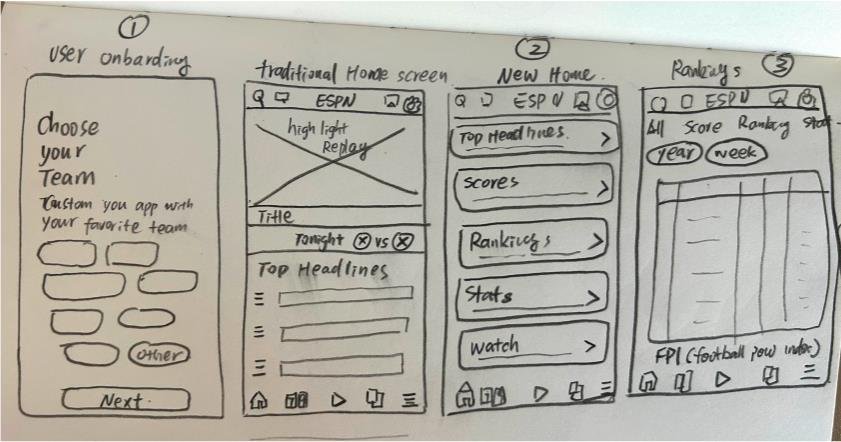 ①
user onbarding
Choose
your
Team
Custom you app with
your favorite team
other
Next.
traditional Home screen
ESPN
high light
Replay
Title
Tonight ⓧ vs ⓧ
Top Headlines
②
New Home.
ESPN
Top Headlines. >
scores >
Rankings >
Stats >
watch >
③
Rankings
ESPN
All score Ranking stat
year week
FPI (football pow index)